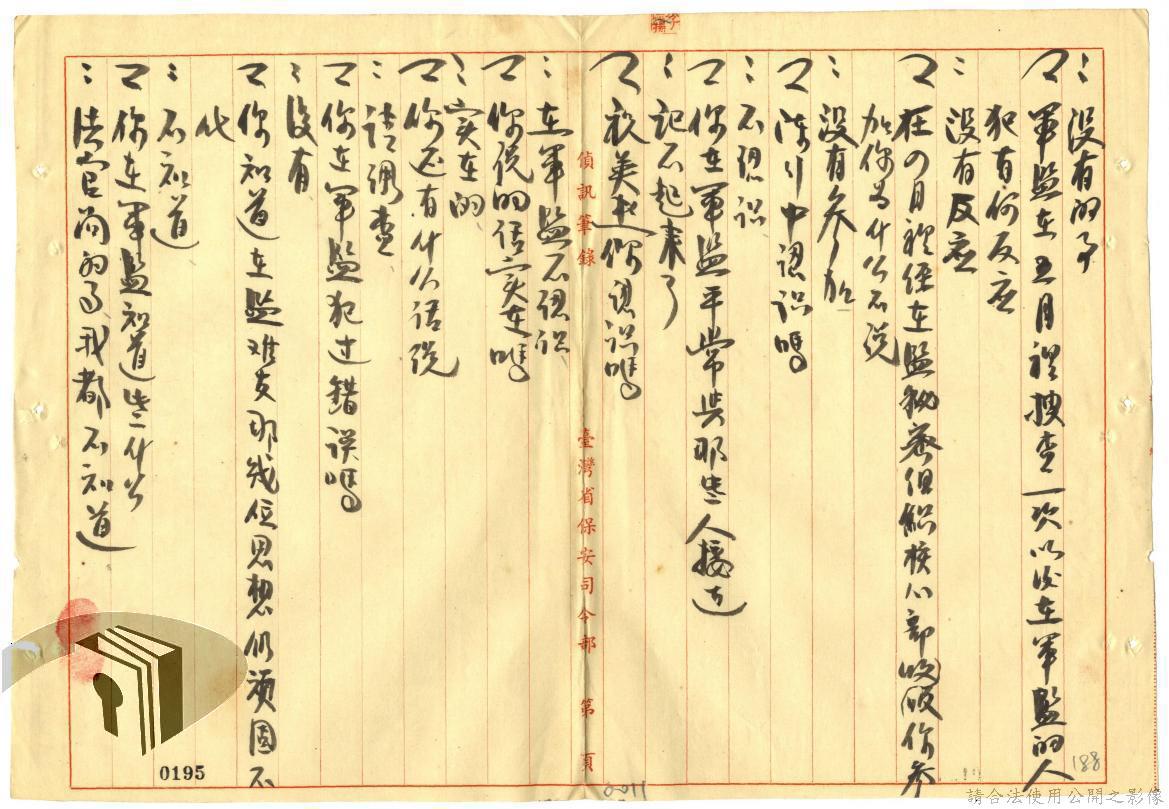 ：没有的事
マ軍監在五月裡搜查一次以後在軍監的人
犯有何反应
：没有反应
マ在四月裡经在監秘密组織核心部吸收你参
加你為什么不说
：没有参加
マ陈行中認识嗎
：不認识
マ你在軍監平常與那些人接近
：記不起来了
マ你認识嗎
：在軍監不認识
マ你说的话实在嗎
：实在的
マ你还有什么话说
：請調查
マ你在軍監犯过錯误嗎
：没有
マ你知道在監难友那幾位思想仍顽固不
化
：不知道
マ你在軍監知道些什么
：法官问的事我都不知道
偵訊筆錄
臺灣省保安司令部 第 頁
0195
188
請合法使用公開之影像